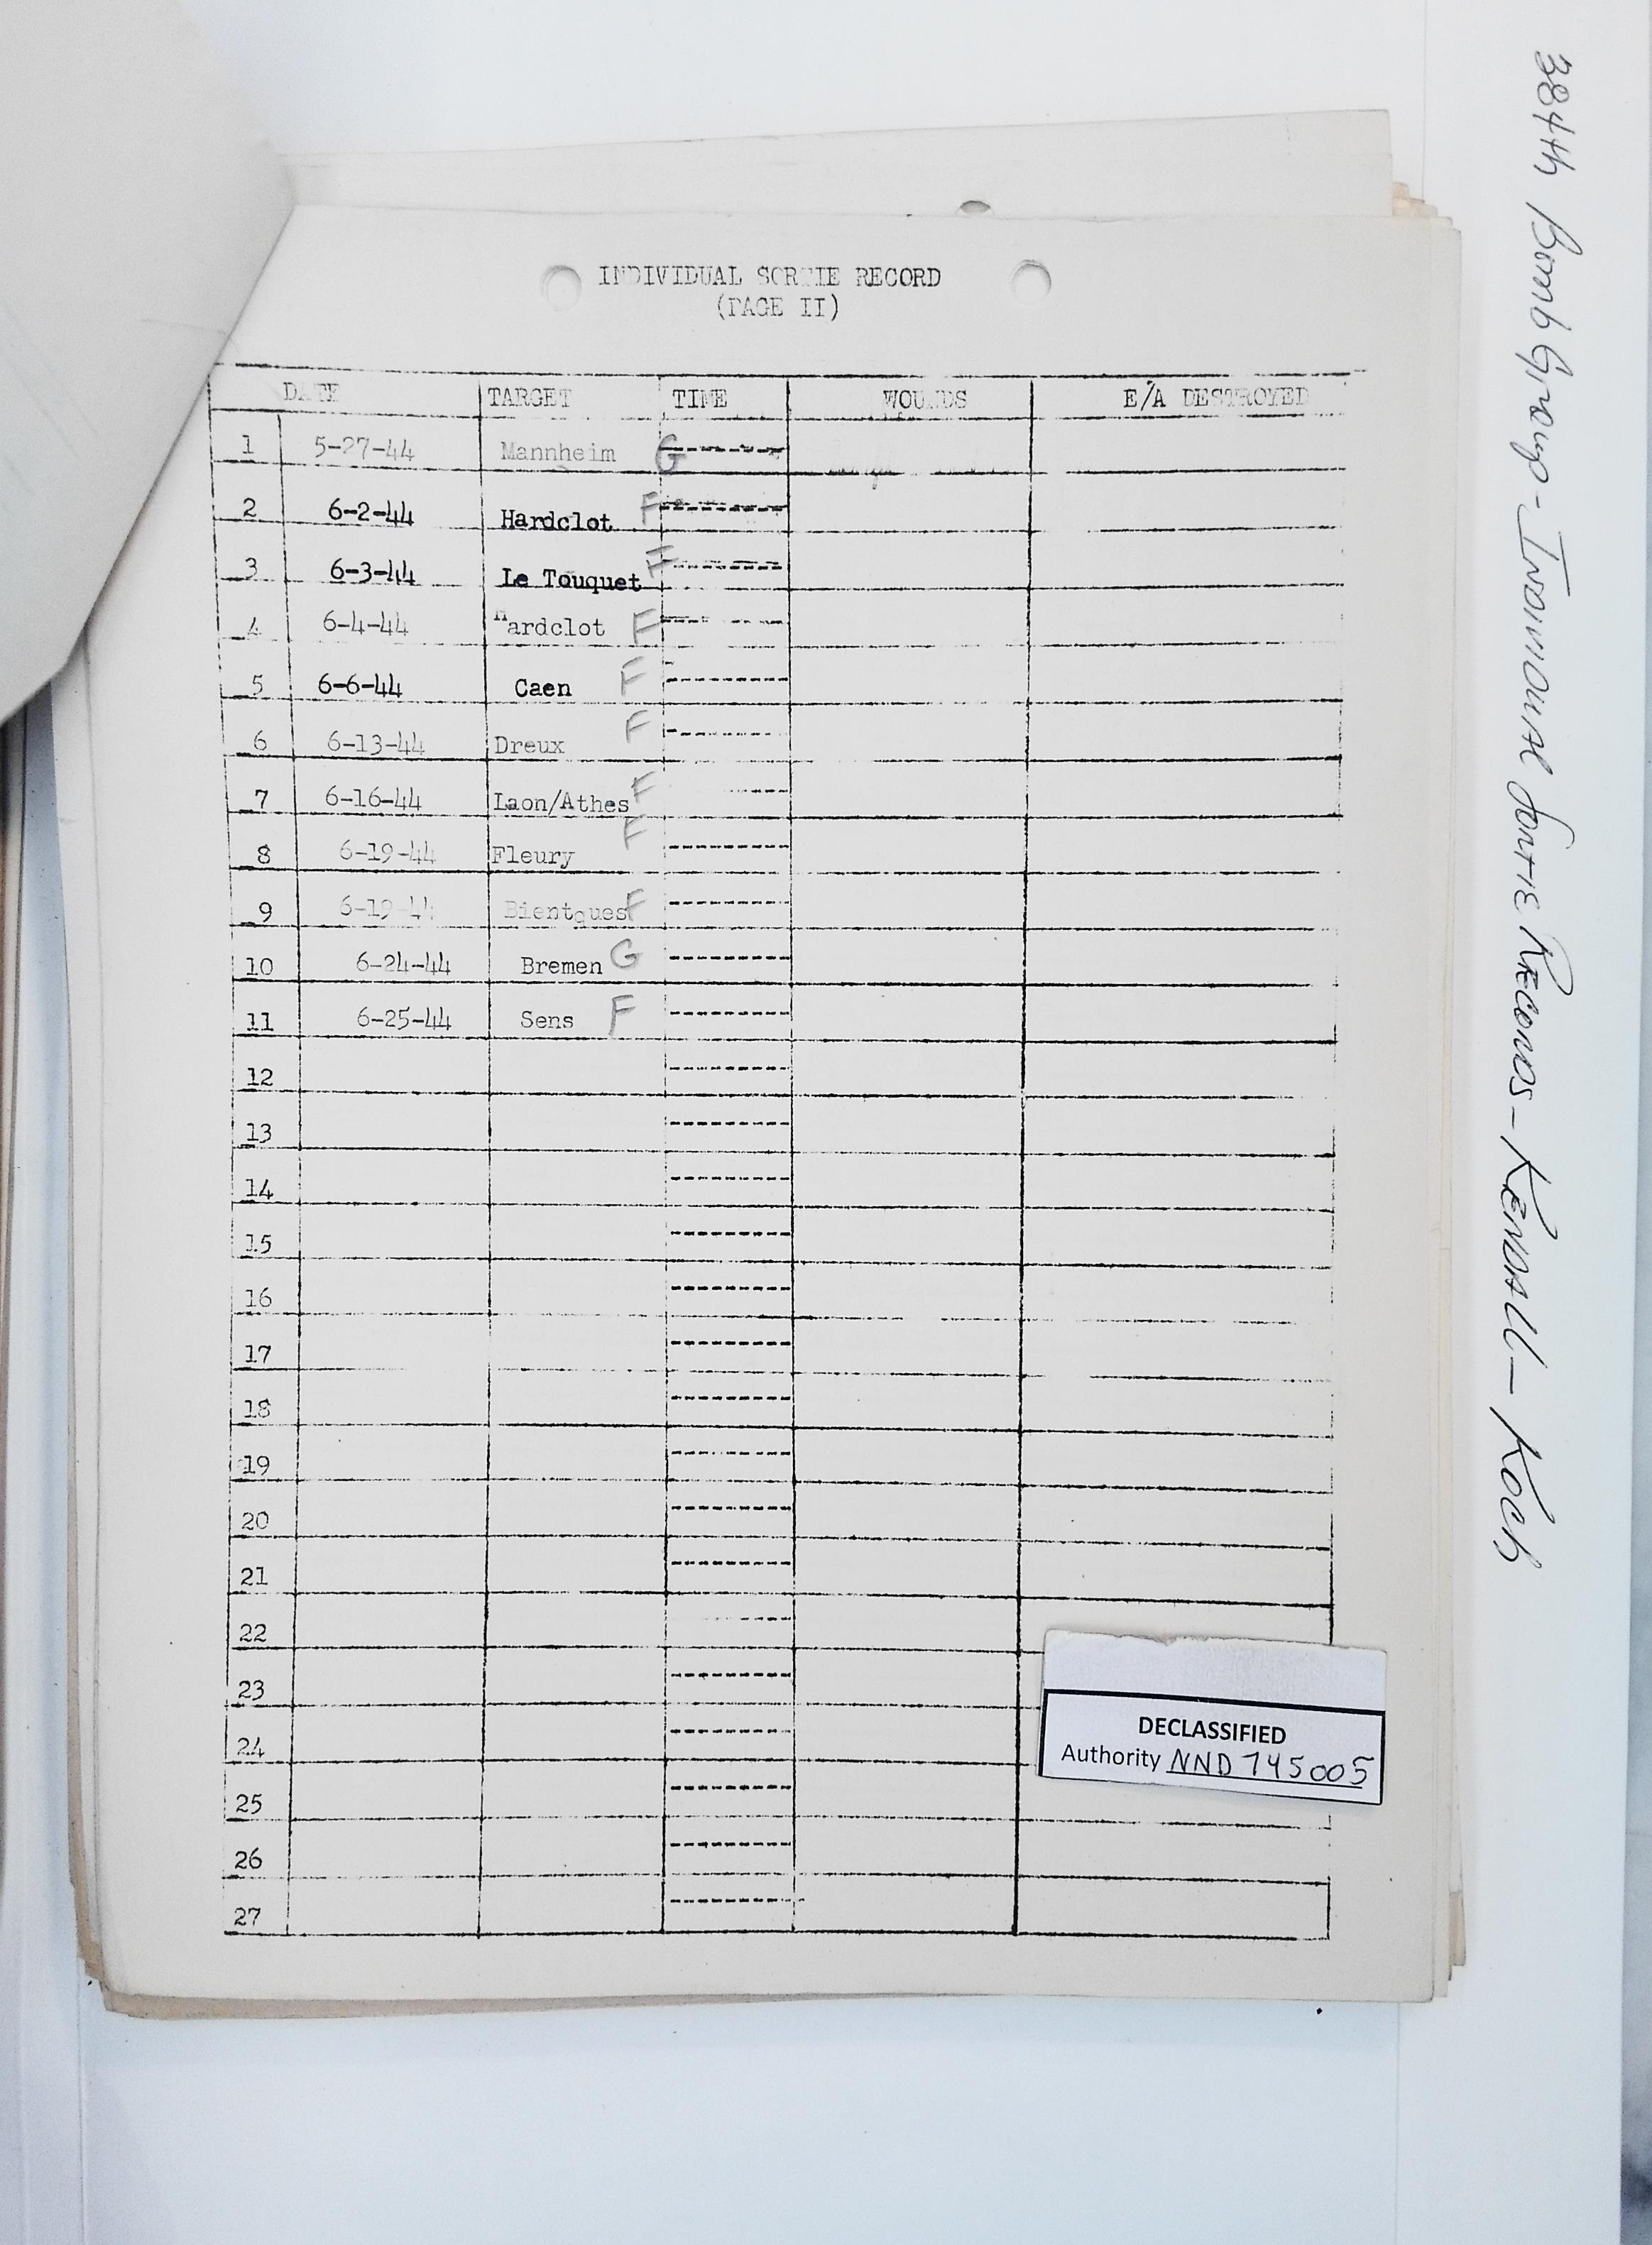 INDIVIDUAL SORTIE RECORD
(PAGE II)
DATE TARGET TIME WOUNDS E/A DESTROYED
1 5-27-44 Mannheim G
2 6-2-44 Hardclot F
3 6-3-44 Le Touquet F
4 6-4-44 Hardclot F
5 6-6-44 Caen F
6 6-13-44 Dreux F
7 6-16-44 Laon/Athes F
8 6-19-44 Fleury F
9 6-19-44 Bientques F
10 6-24-44 Bremen G
11 6-25-44 Sens F
12
13
14
15
16
17
18
19
20
21
22
23
24
25
26
27
DECLASSIFIED
Authority NND 745005
384th Bomb Group - Individual Sortie Records - Kendall - Koch